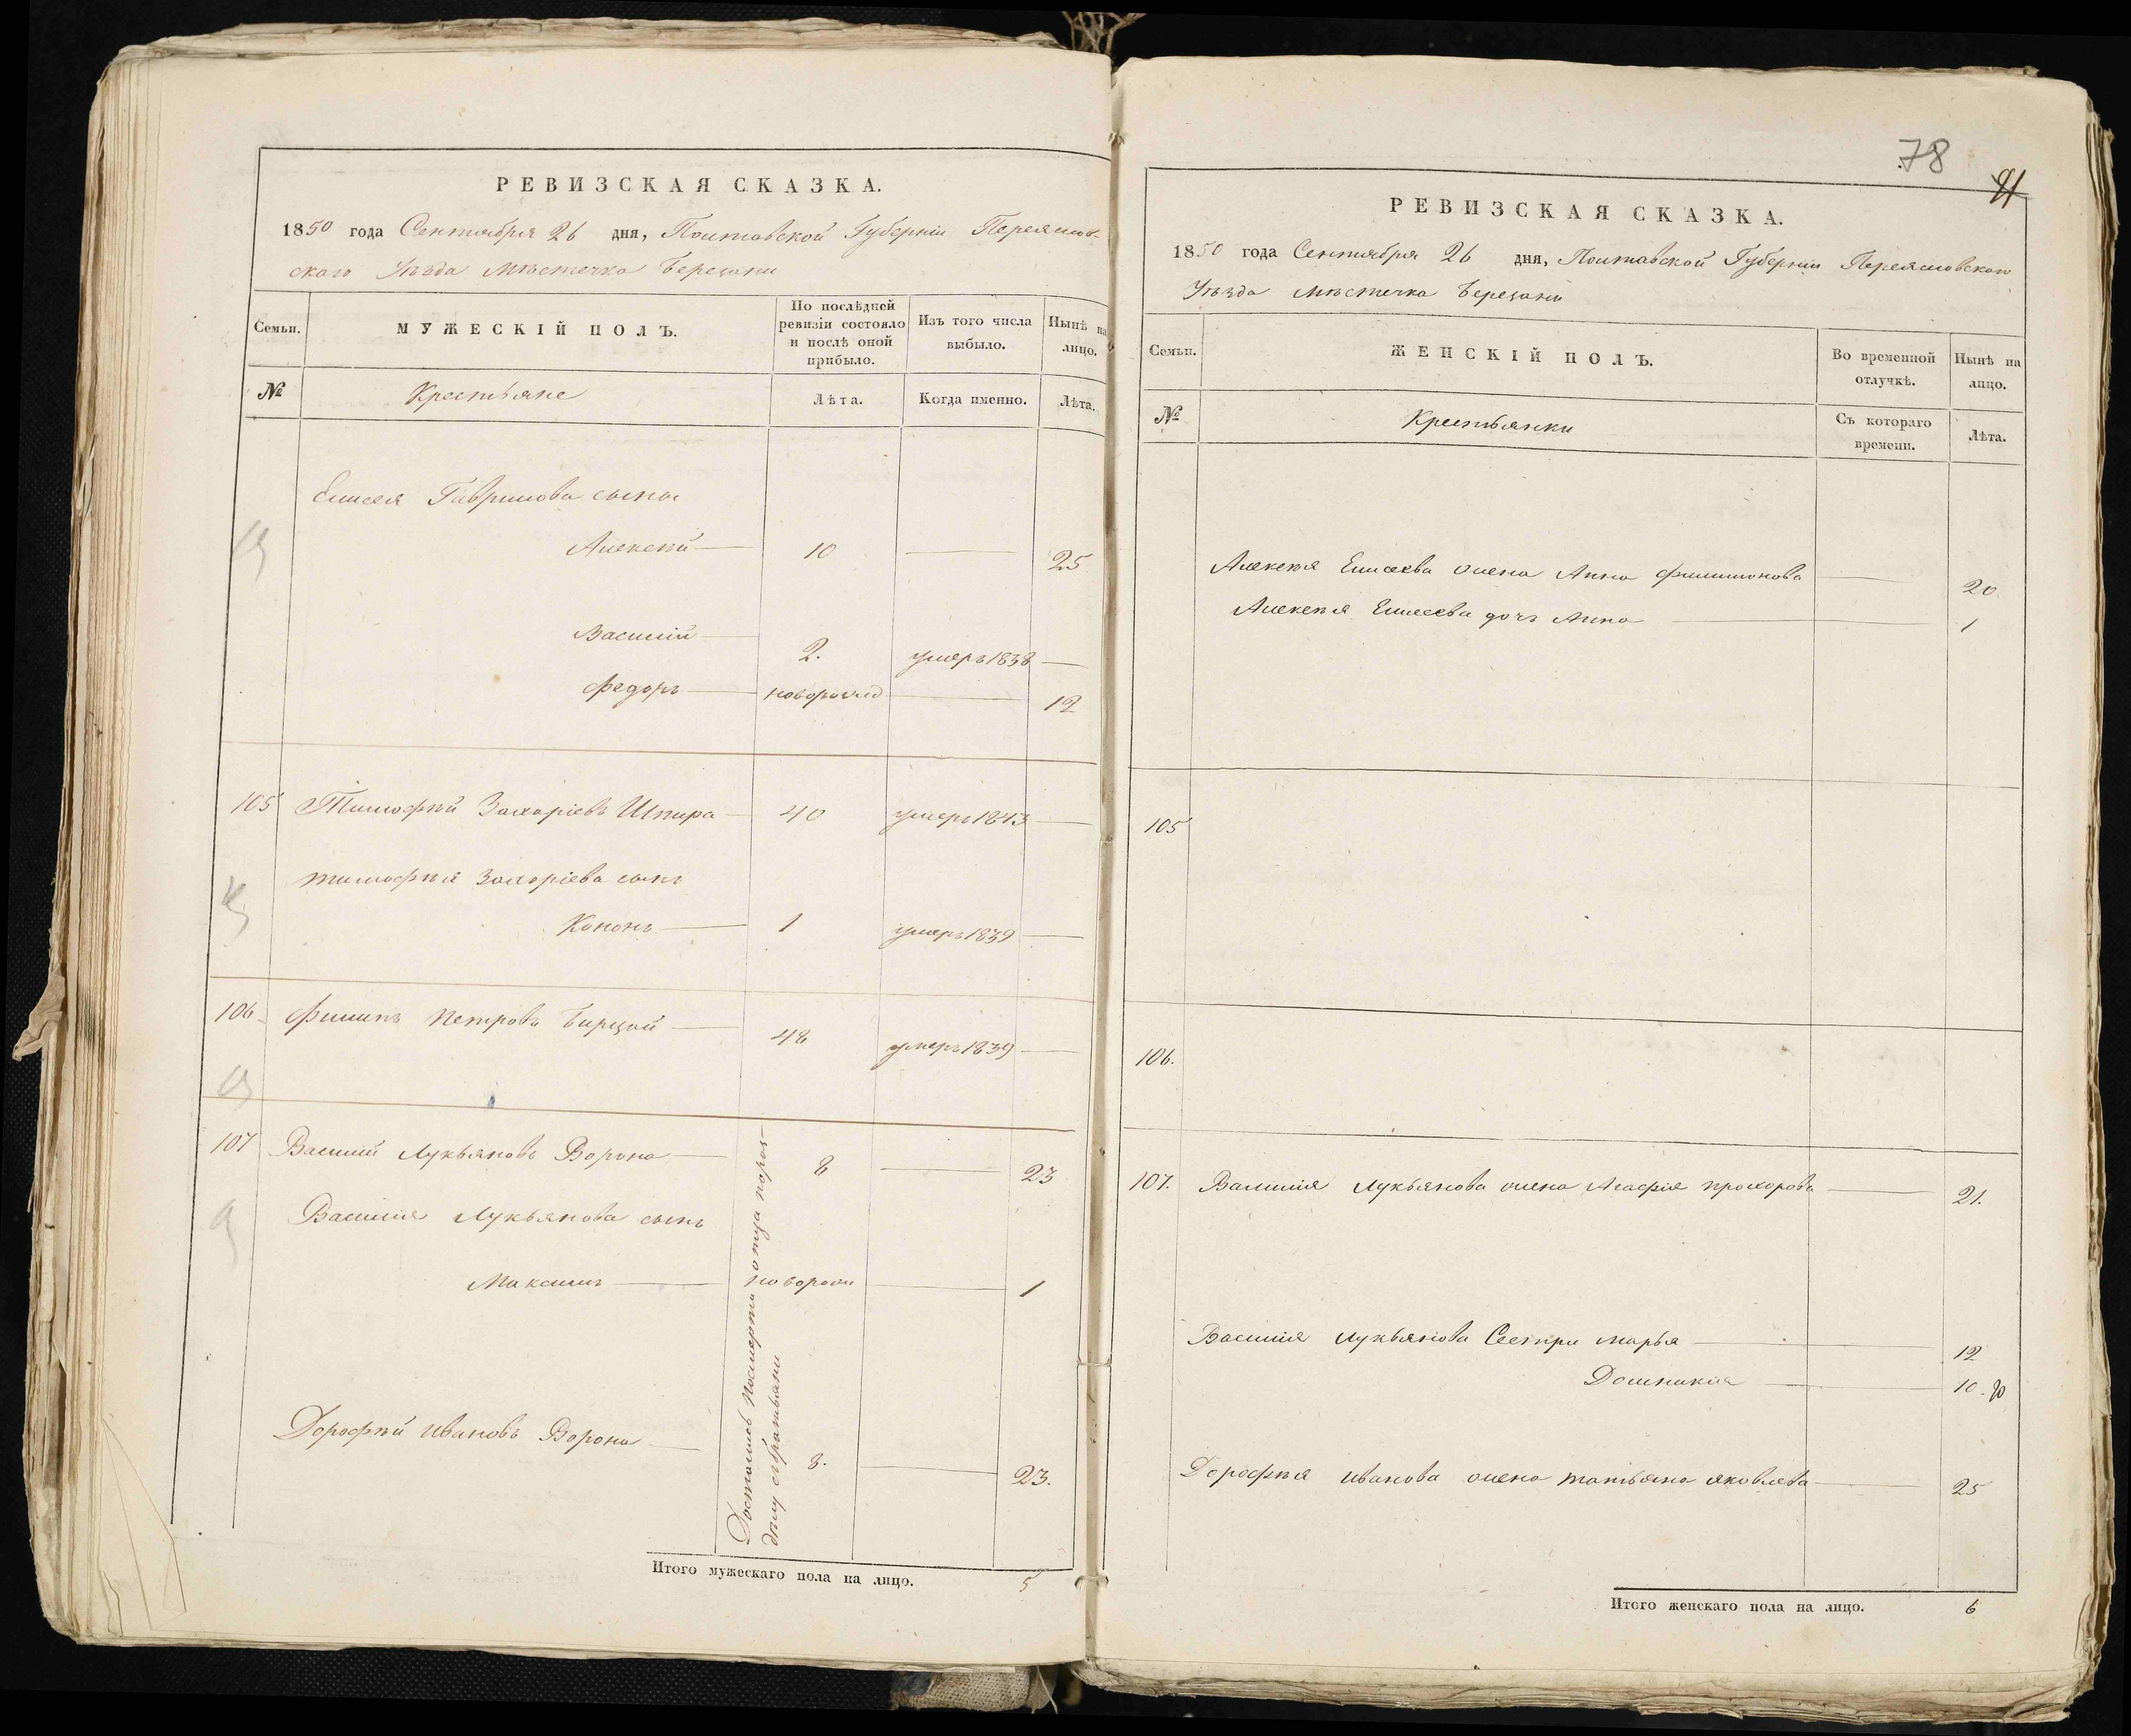 РЕВИЗСКАЯ СКАЗКА.
1850 года Сентября 26 дня, Полтавской Губерніи Переяслов-
скаго Уѣзда Мѣстечка Березани
Семьи.
МУЖЕСКІЙ ПОЛЪ.
По послѣдней ревизіи состояло и послѣ оной прибыло.
Изъ того числа выбыло.
Нынѣ на лицо.
№
Крестьяне
Лѣта.
Когда именно.
Лѣта.
Елисея Гаврилова сыны
Алексѣй 10 25
Василій 2. умеръ 1838
Федоръ новорожд 12
105 Тимофѣй Захаріевъ Шпира 40 умеръ 1843
Тимофѣя Захаріева сынъ
Кононъ 1 умеръ 1839
106 Филипъ Петровъ 48 умеръ 1839
107 Василій Лукьяновъ Ворона 8 23
Василія Лукьянова сынъ
Максимъ новорож 1
Дорофѣй Ивановъ Ворона 8. 23.
Достались посмерти отца по
дѣлу съ братьями
Итого мужескаго пола на лицо. 5
78
91
РЕВИЗСКАЯ СКАЗКА.
1850 года Сентября 26 дня, Полтавской Губерніи Переясловскаго
Уѣзда Мѣстечка Березани
Семьи.
ЖЕНСКІЙ ПОЛЪ.
Во временной отлучкѣ.
Нынѣ на лицо.
№
Крестьянки
Съ котораго времени.
Лѣта.
Алексѣя Елисеева жена Анна Филимонова 20
Алексѣя Елисеева дочь Анна 1
105
106.
107. Василія Лукьянова жена Агафія Прохорова 21.
Василія Лукьянова Сестры Марья 12
Домникия 10.
Дорофѣя Иванова жена Татьяна Яковлева 25
Итого женскаго пола на лицо. 6